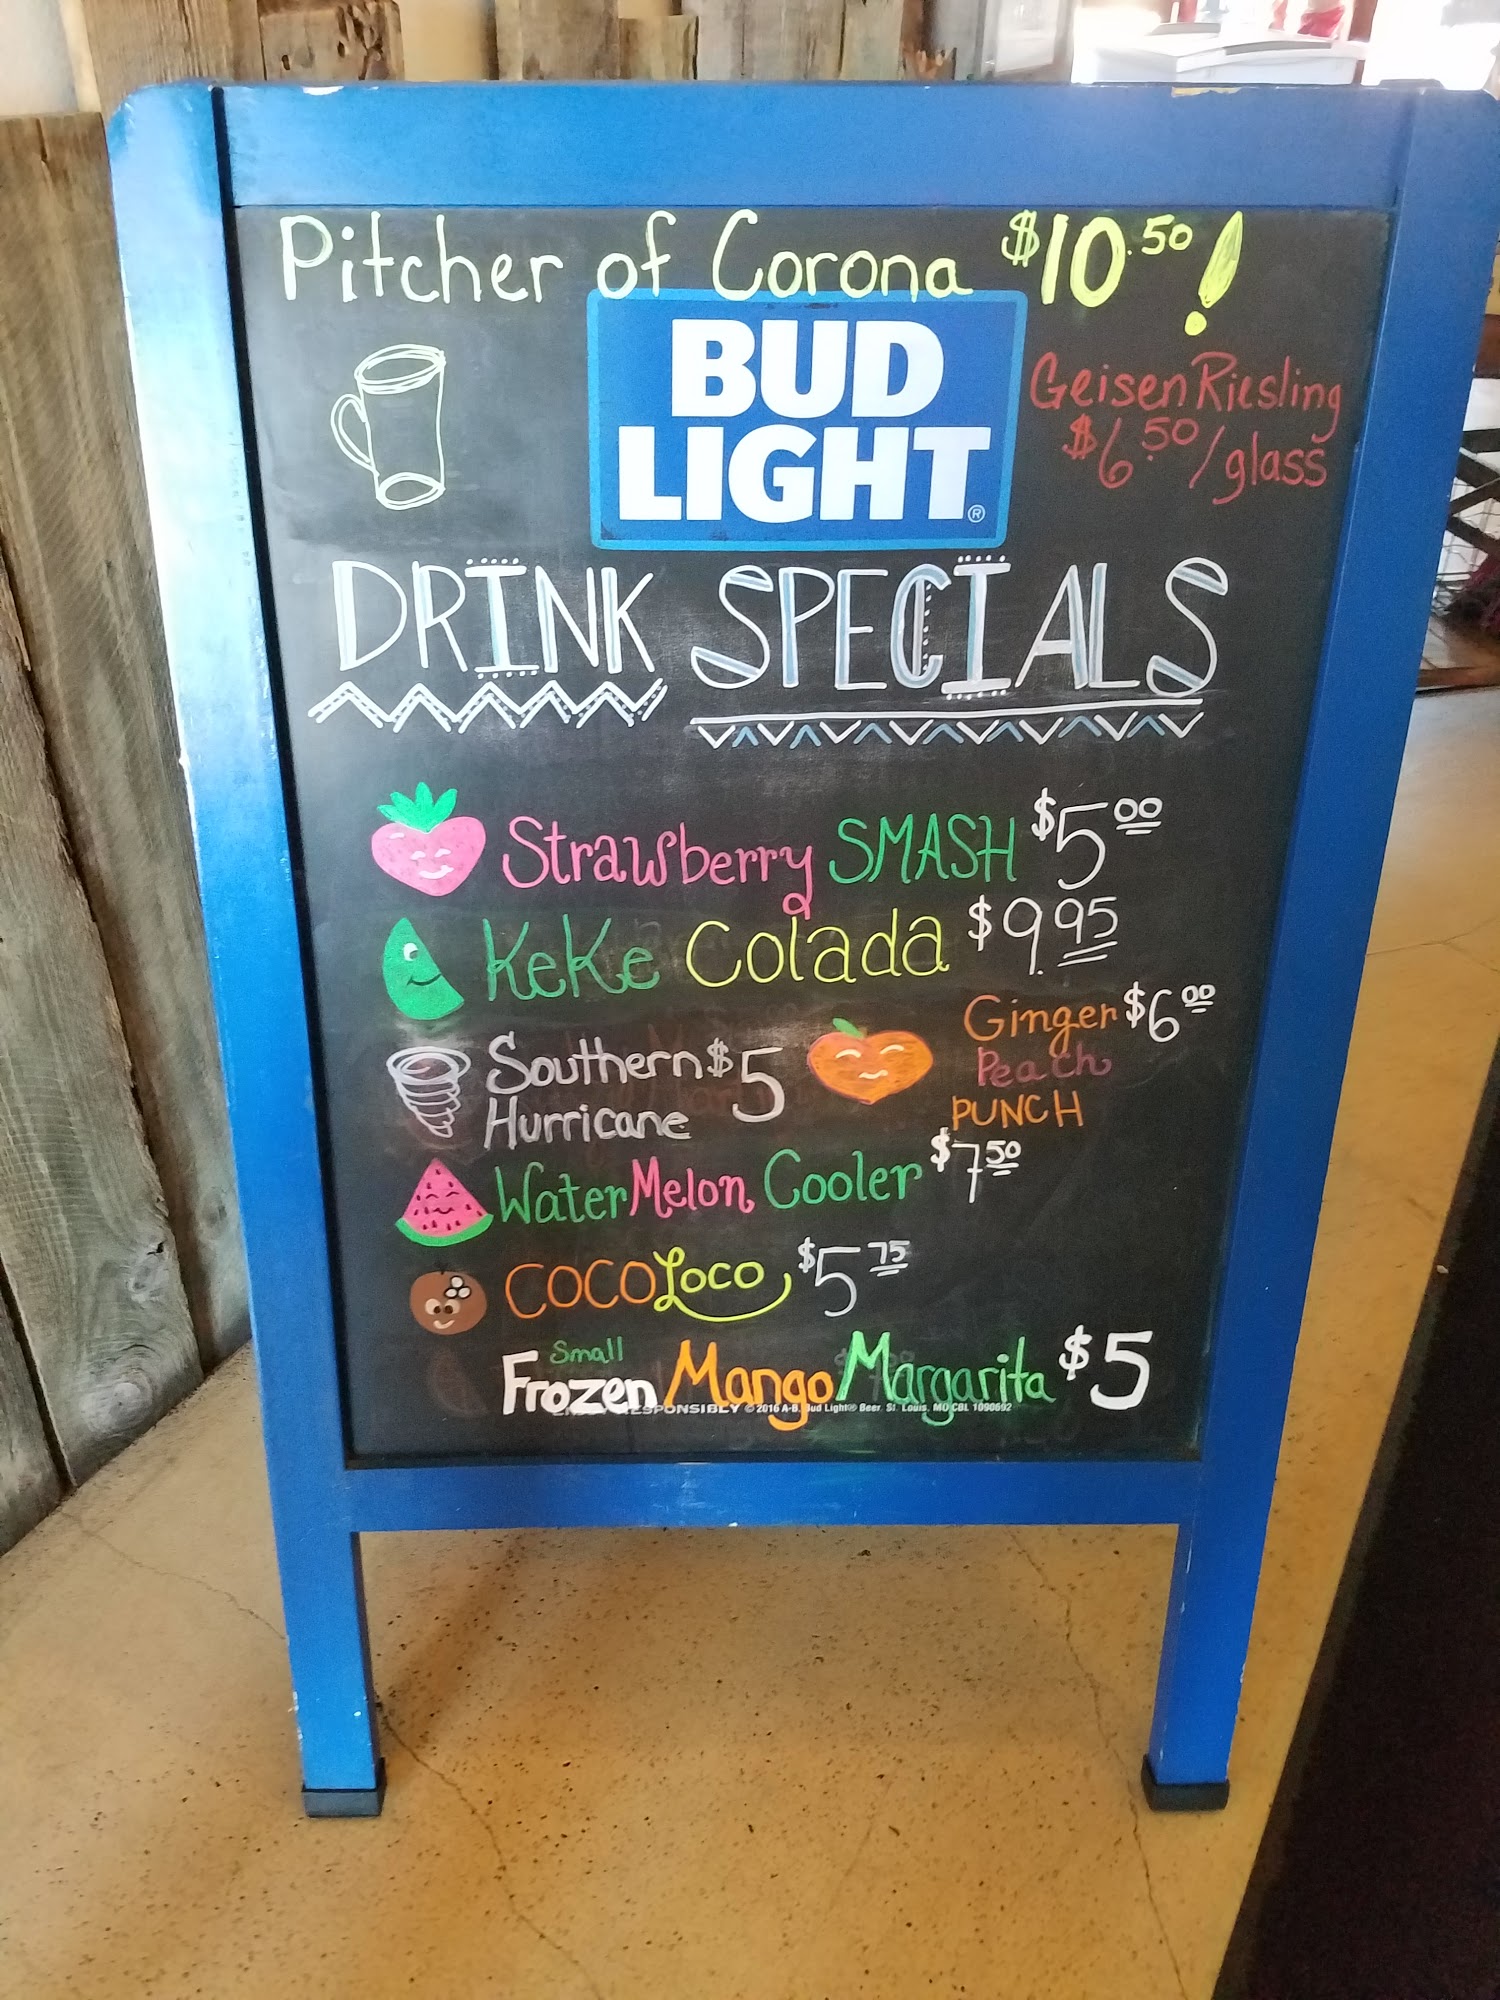 Pitcher of Corona $10.50!
BUD
LIGHT®
Geisen Riesling
$6.50/glass
DRINK SPECIALS
Strawberry SMASH $5.00
KeKe Colada $9.95
Southern $5
Hurricane
Ginger $6.00
Peach
PUNCH
WaterMelon Cooler $7.50
COCO Loco $5.75
Small
Frozen Mango Margarita $5
RESPONSIBLY © 2016 A-B, Bud Light® Beer, St. Louis, MO CBL 1090692